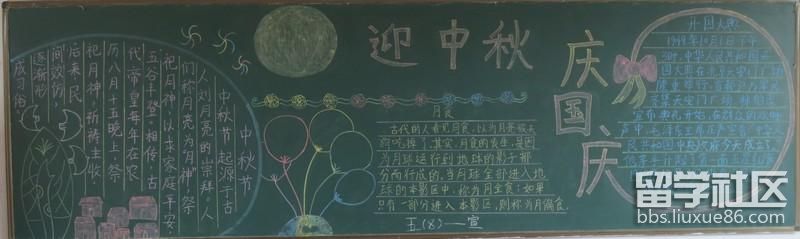 迎中秋
庆国庆
中秋节
中秋节起源于古
人对月亮的崇拜。人
们称月亮为月神,祭
祀月神,以求家庭平安,
五谷丰登。相传,古
代帝皇每年在农
历八月十五晚上,祭
祀月神,祈祷丰收
后来,民
间效仿,
逐渐形
成习俗
月食
古代的人看见月食,以为月亮被天
狗吃掉了,其实,月食的发生,是因
为月球运行到地球的影子部
分而行成的,当月球全部进入地
球的本影区中,称为月全食;如果
只有一部分进入本影区,则称为月偏食。
五(8)一宣
开国大典
1949年10月1日下午
3时,中华人民共和国开
国大典在北京天安门广场
隆重举行
宣布典礼开始,在群众的欢呼
声中,毛泽东主席庄严宣告:中华人
民共和国中央人民政府今天成立了
留学社区
bbs.liuxue86.com